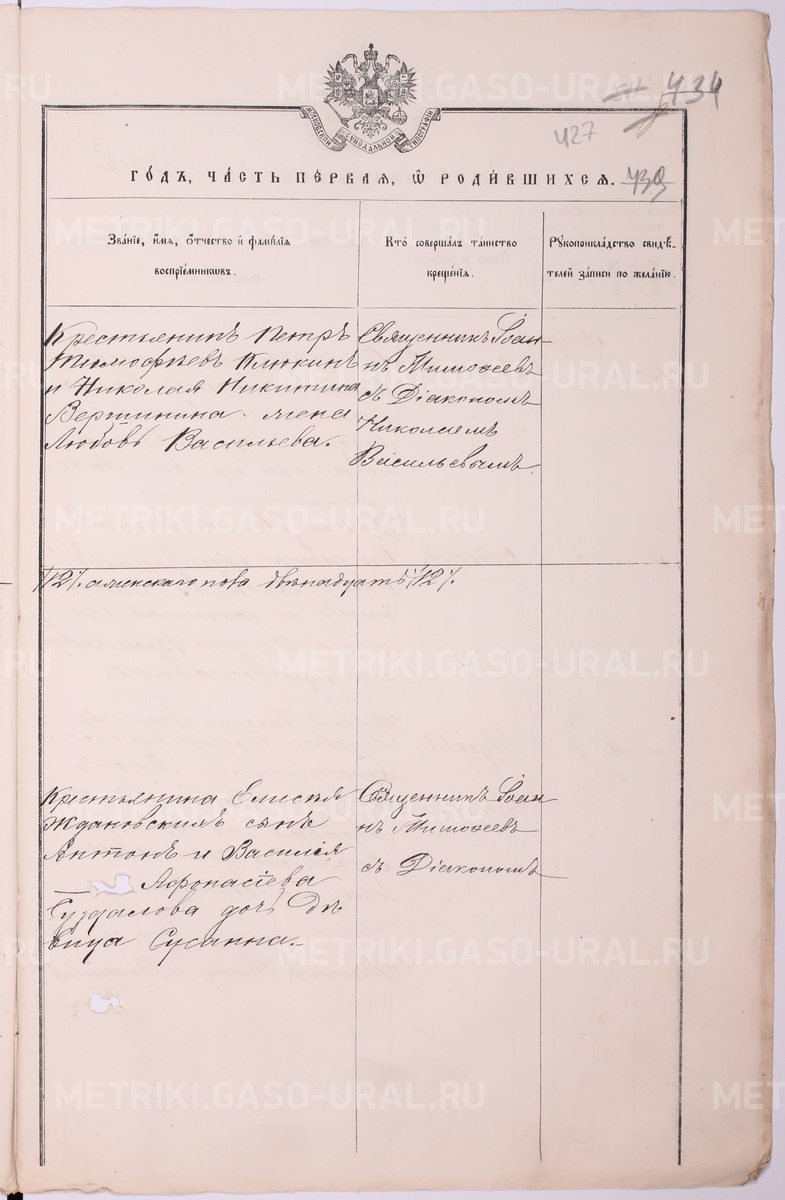 434
427
МОСКОВСКОЙ СѴНОДАЛЬНОЙ ТИПОГРАФІИ
ГО́ДЪ, ЧА́СТЬ ПЕ́РВАЯ, Ѡ҆ РОДИ́ВШИХСЯ.
Зва́нїе, и҆́мя, ѻ҆́тчество и҆ фами́лїя воспрїе́мниковъ.
Кто̀ соверша́лъ та́инство креще́нїя.
Рꙋкоприкла́дство свидѣ́телей за́писи по жела́нїю.
Крестьянинъ Петръ
Тимофѣевъ Плюхинъ
и Николая Никитина
Вершинина жена
Любовь Васильева.
Священникъ Іоан
нъ Тимоѳеевъ
съ Діакономъ
Николаемъ
Васильевымъ
/12/. пола двѣнадцать /12/.
Крестьянина Елисѣя
Ждановскихъ сынъ
Антонъ и Василія
Афонасіева
Суздалова дочь дѣ
вица Сусанна.
Священникъ Іоан
нъ Тимоѳеевъ
съ Діакономъ
METRIKI.GASO-URAL.RU